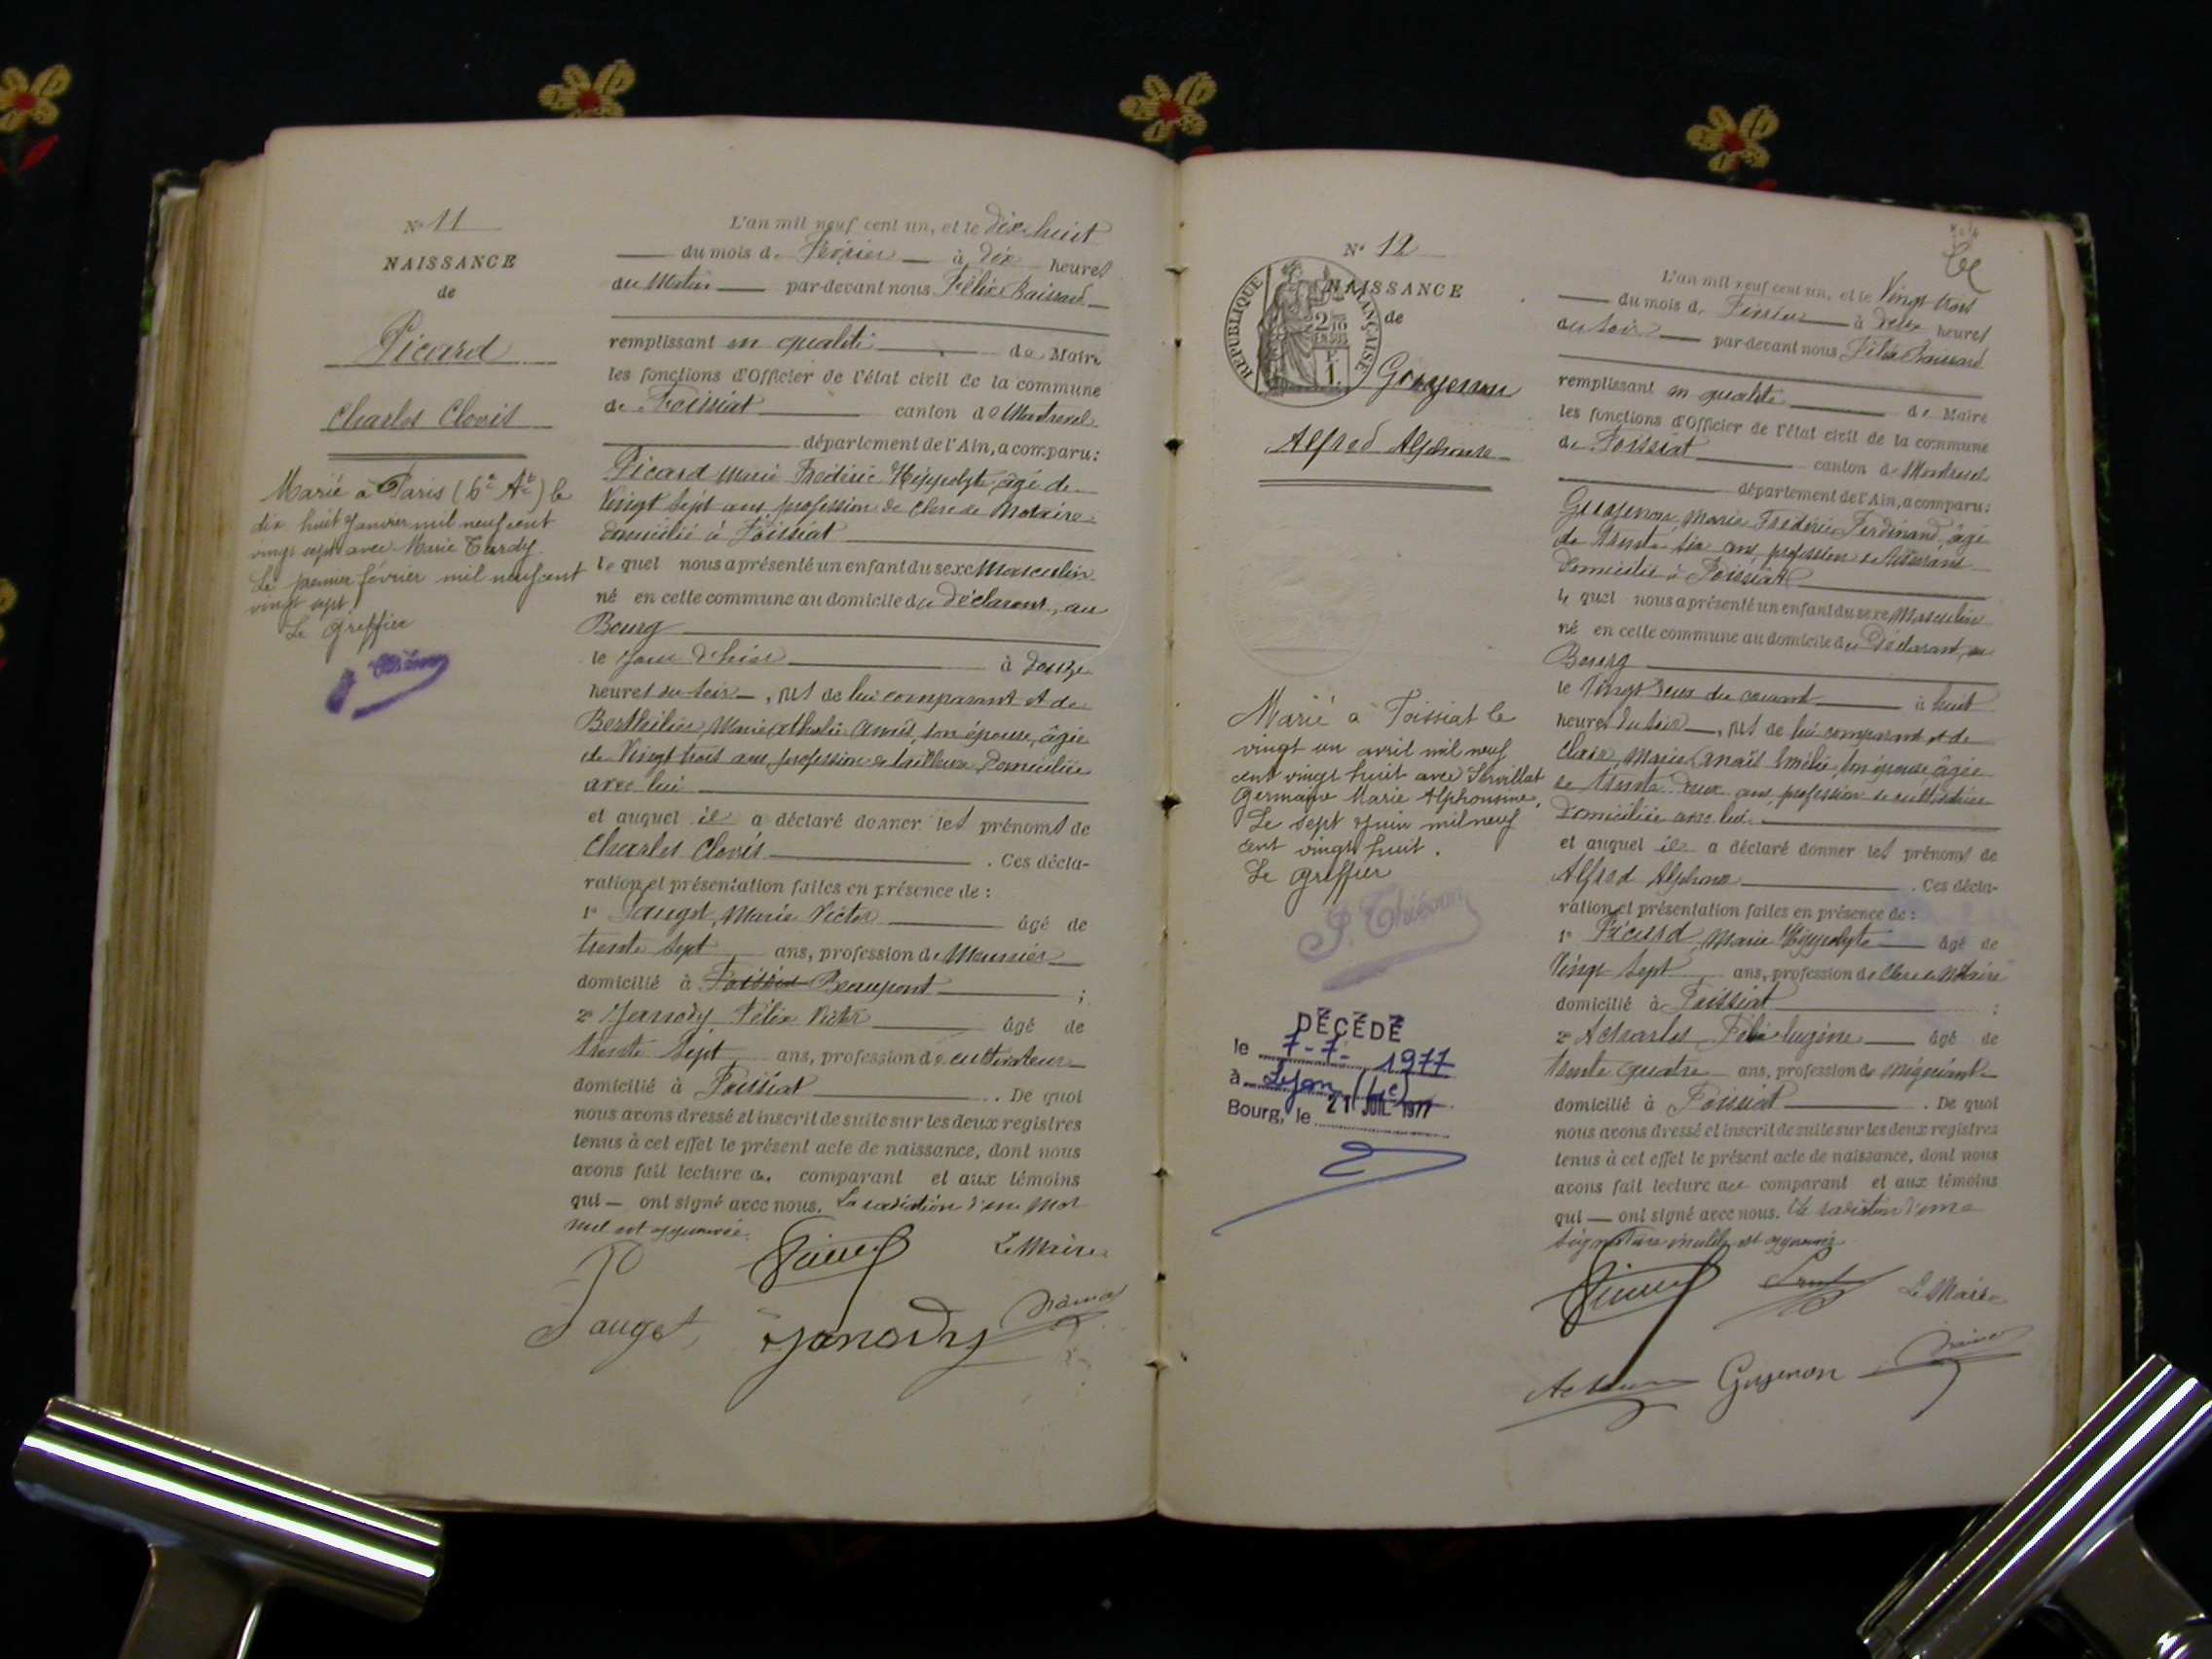 N° 11
NAISSANCE
de
Picard
Charles Clovis
Marié à Paris (6e Art) le
dix huit Janvier mil neuf cent
vingt sept avec Marie Tardy.
Le premier février mil neuf cent
vingt sept.
Le Greffier
L'an mil neuf cent un, et le dix huit
du mois de Février à dix heures
du Matin par-devant nous Félix
remplissant en qualité de Maire
les fonctions d'Officier de l'état civil de la commune
de Foissiat canton de Montrevel
département de l'Ain, a comparu:
Picard Marie Frédéric Hippolyte, âgé de
Vingt Sept ans profession de Clerc de Notaire
domicilié à Foissiat
le quel nous a présenté un enfant du sexe Masculin
né en cette commune au domicile du déclarant, au
Bourg
le jour d'hier à douze
heures du soir, fils de lui comparant et de
Marie Athalie Anaïs, son épouse, âgée
de Vingt trois ans, profession de tailleuse, domiciliée
avec lui
et auquel il a déclaré donner les prénoms de
Charles Clovis . Ces décla-
ration et présentation faites en présence de :
1° Pauget, Marie Victor âgé de
trente Sept ans, profession de Meunier
domicilié à Foissiat Beaupont ;
2° Janody, Félix Victor âgé de
trente Sept ans, profession de cultivateur
domicilié à Foissiat . De quoi
nous avons dressé et inscrit de suite sur les deux registres
tenus à cet effet le présent acte de naissance, dont nous
avons fait lecture au comparant et aux témoins
qui ont signé avec nous. La radiation d'un Mot
nul est approuvée.
Le Maire
Pauget Janody
N° 12
NAISSANCE
de
RÉPUBLIQUE FRANÇAISE
Guyenon
Alfred Alphonse
Marié à Foissiat le
vingt un avril mil neuf
cent vingt huit avec Servillat
Germaine Marie Alphonsine,
Le sept Juin mil neuf
cent vingt huit.
Le Greffier
DÉCÉDÉ
le 7-7- 1977
à Lyon (4e)
Bourg, le 21 JUIL 1977
L'an mil neuf cent un, et le Vingt trois
du mois de Février à deux heures
du soir par-devant nous Félix
remplissant en qualité de Maire
les fonctions d'Officier de l'état civil de la commune
de Foissiat canton de Montrevel
département de l'Ain, a comparu:
Guyenon, Marie Frédéric Ferdinand, âgé
de trente six ans, profession de
domicilié à Foissiat
le quel nous a présenté un enfant du sexe Masculin
né en cette commune au domicile du Déclarant, au
Bourg
le Vingt deux du courant à huit
heures du soir, fils de lui comparant et de
Clair, Marie Anaïs Emélie, son épouse, âgée
de trente deux ans, profession de cultivatrice
domiciliée avec lui.
et auquel il a déclaré donner les prénoms de
Alfred Alphonse . Ces décla-
ration et présentation faites en présence de :
1° Picard Marie Hippolyte âgé de
Vingt Sept ans, profession de Clerc de Notaire
domicilié à Foissiat ;
2° Félix Eugène âgé de
trente quatre ans, profession de négociant
domicilié à Foissiat . De quoi
nous avons dressé et inscrit de suite sur les deux registres
tenus à cet effet le présent acte de naissance, dont nous
avons fait lecture au comparant et aux témoins
qui ont signé avec nous. La radiation d'une
signature inutile est approuvée
Le Maire
Guyenon